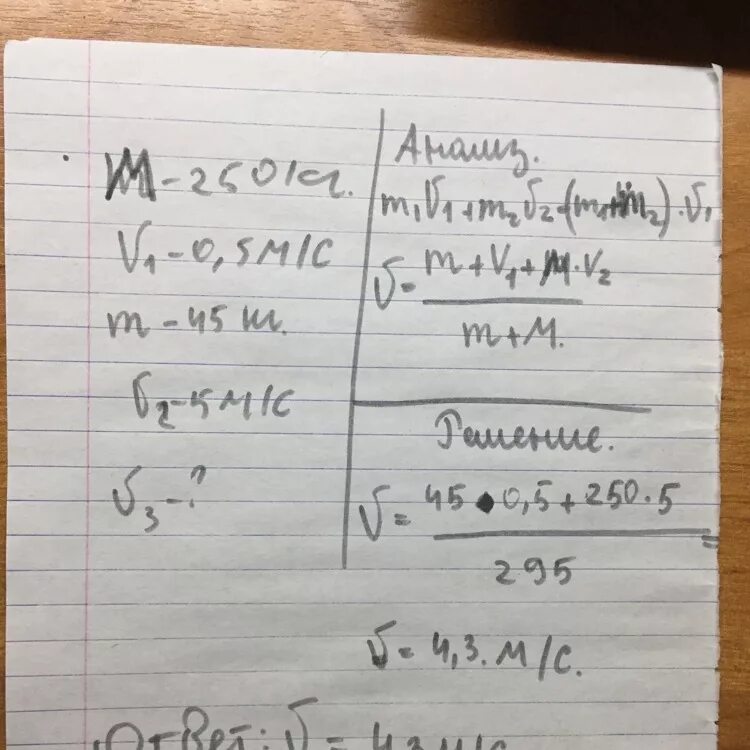 M - 250 кг.
V₁ - 0,5 м/с
m - 45 кг.
υ₂ - 5 м/с
υ₃ - ?
Анализ.
m₁υ₁ + m₂υ₂ = (m₁+m₂)·υ,
υ = m + V₁ + M·V₂
m + M.
Решение.
υ = 45 • 0,5 + 250·5 =
295
υ = 4,3. м/с.
Ответ: υ = 4,3 м/с